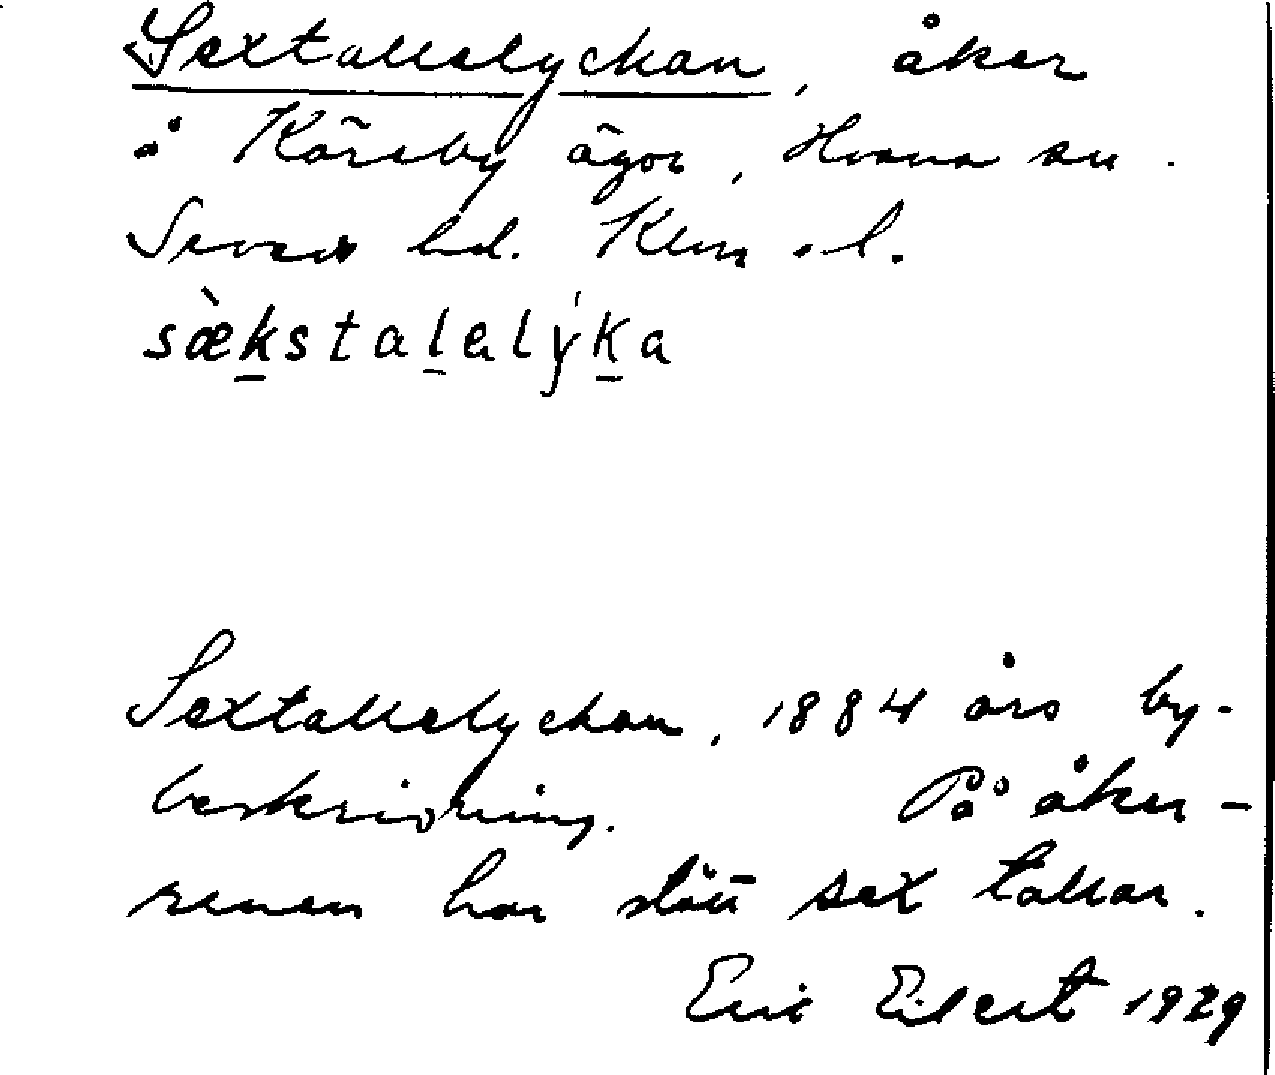 Sextallelyckan, åker
å Käreby ägor, Hvena sn.
Sevede hd. Kalm. l.
sæ̀kstalalýka
Sextallelyckan, 1884 års by-
beskrivning. På åker-
renen har stått sex tallar.
Eric Elbert 1929